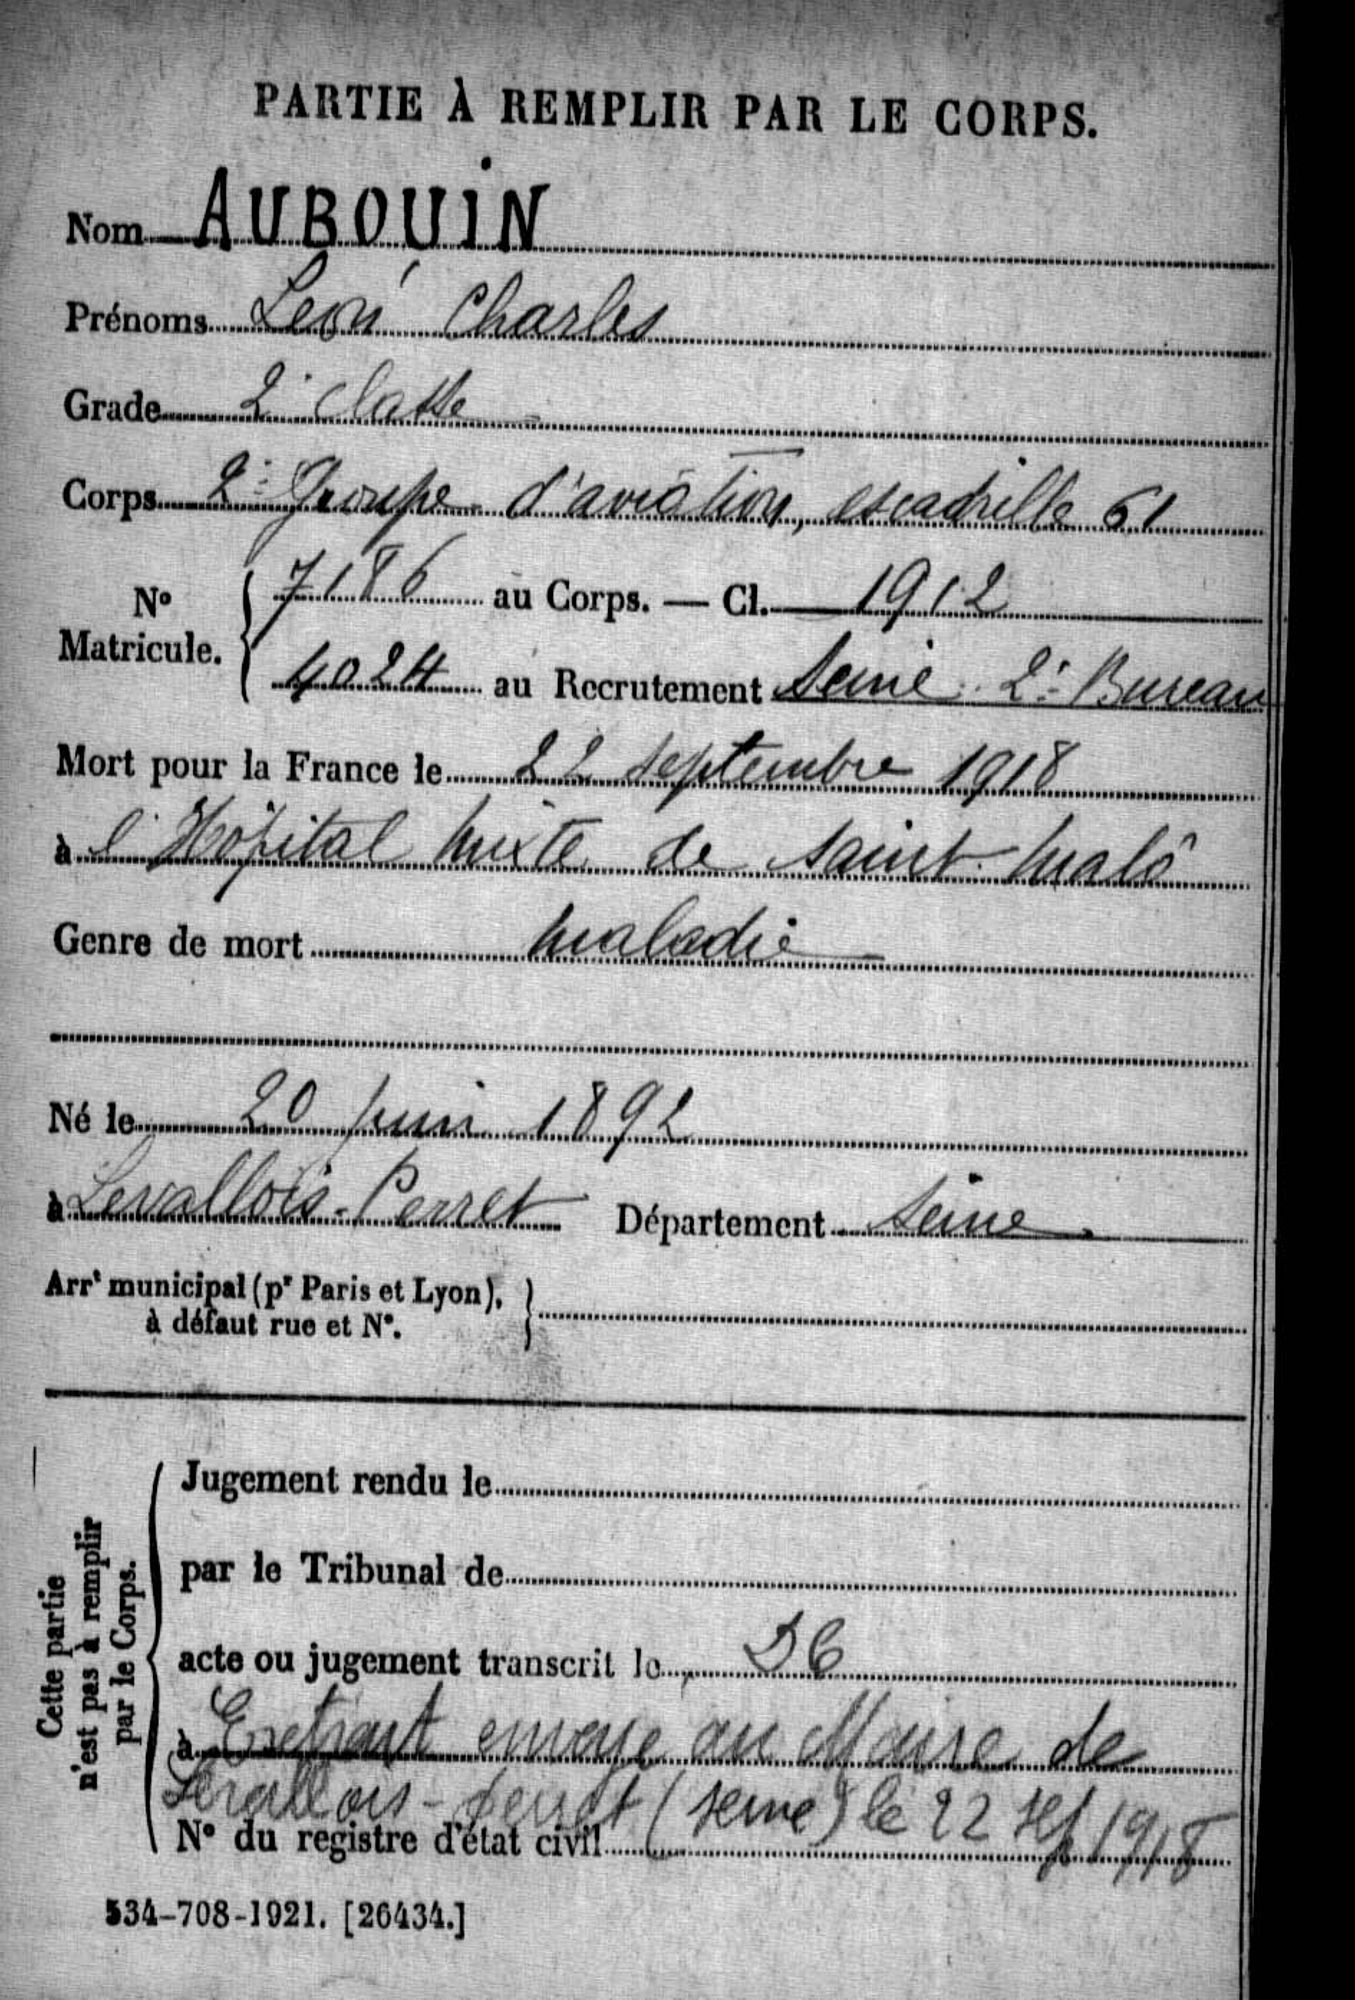 PARTIE À REMPLIR PAR LE CORPS.
Nom AUBOUIN
Prénoms Léon Charles
Grade 2e classe
Corps 2e Groupe d'aviation, escadrille 61
N° Matricule. 7186 au Corps. — Cl. 1912
4024 au Recrutement Seine 2e Bureau
Mort pour la France le 22 septembre 1918
à l'Hôpital mixte de Saint Malô
Genre de mort maladie
Né le 20 juin 1892
à Levallois-Perret Département Seine
Arrt municipal (pr Paris et Lyon),
à défaut rue et N°.
Cette partie
n'est pas à remplir
par le Corps.
Jugement rendu le
par le Tribunal de
acte ou jugement transcrit le DC
à Extrait envoyé au Maire de
Levallois-Perret (Seine) le 22 sep 1918
N° du registre d'état civil
534-708-1921. [26434.]